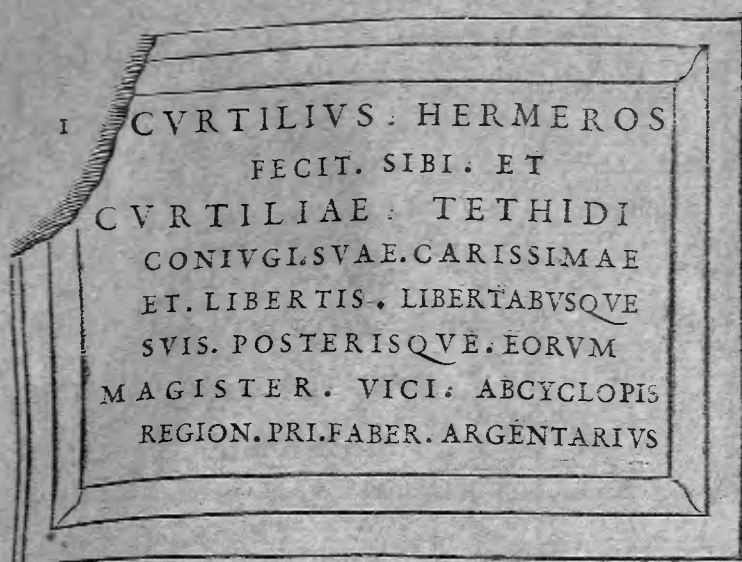 I CVRTILIVS. HERMEROS
FECIT. SIBI. ET
CVRTILIAE. TETHIDI
CONIVGI.SVAE.CARISSIMAE
ET. LIBERTIS. LIBERTABVSQVE
SVIS. POSTERISQVE. EORVM
MAGISTER. VICI. ABCYCLOPIS
REGION.PRI.FABER. ARGENTARIVS